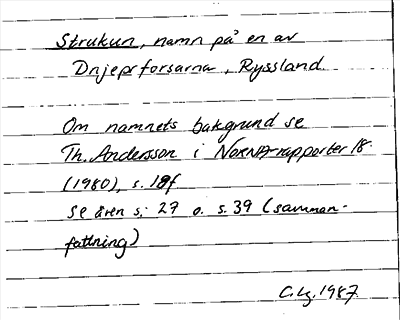 Strukun, namn på en av
Dnjeprforsarna, Ryssland.
Om namnets bakgrund se
Th. Andersson i NORNA-rapporter 18.
(1980), s. 18f
se även s. 27 o. s. 39 (samman-
fattning)
C.Lg. 1987